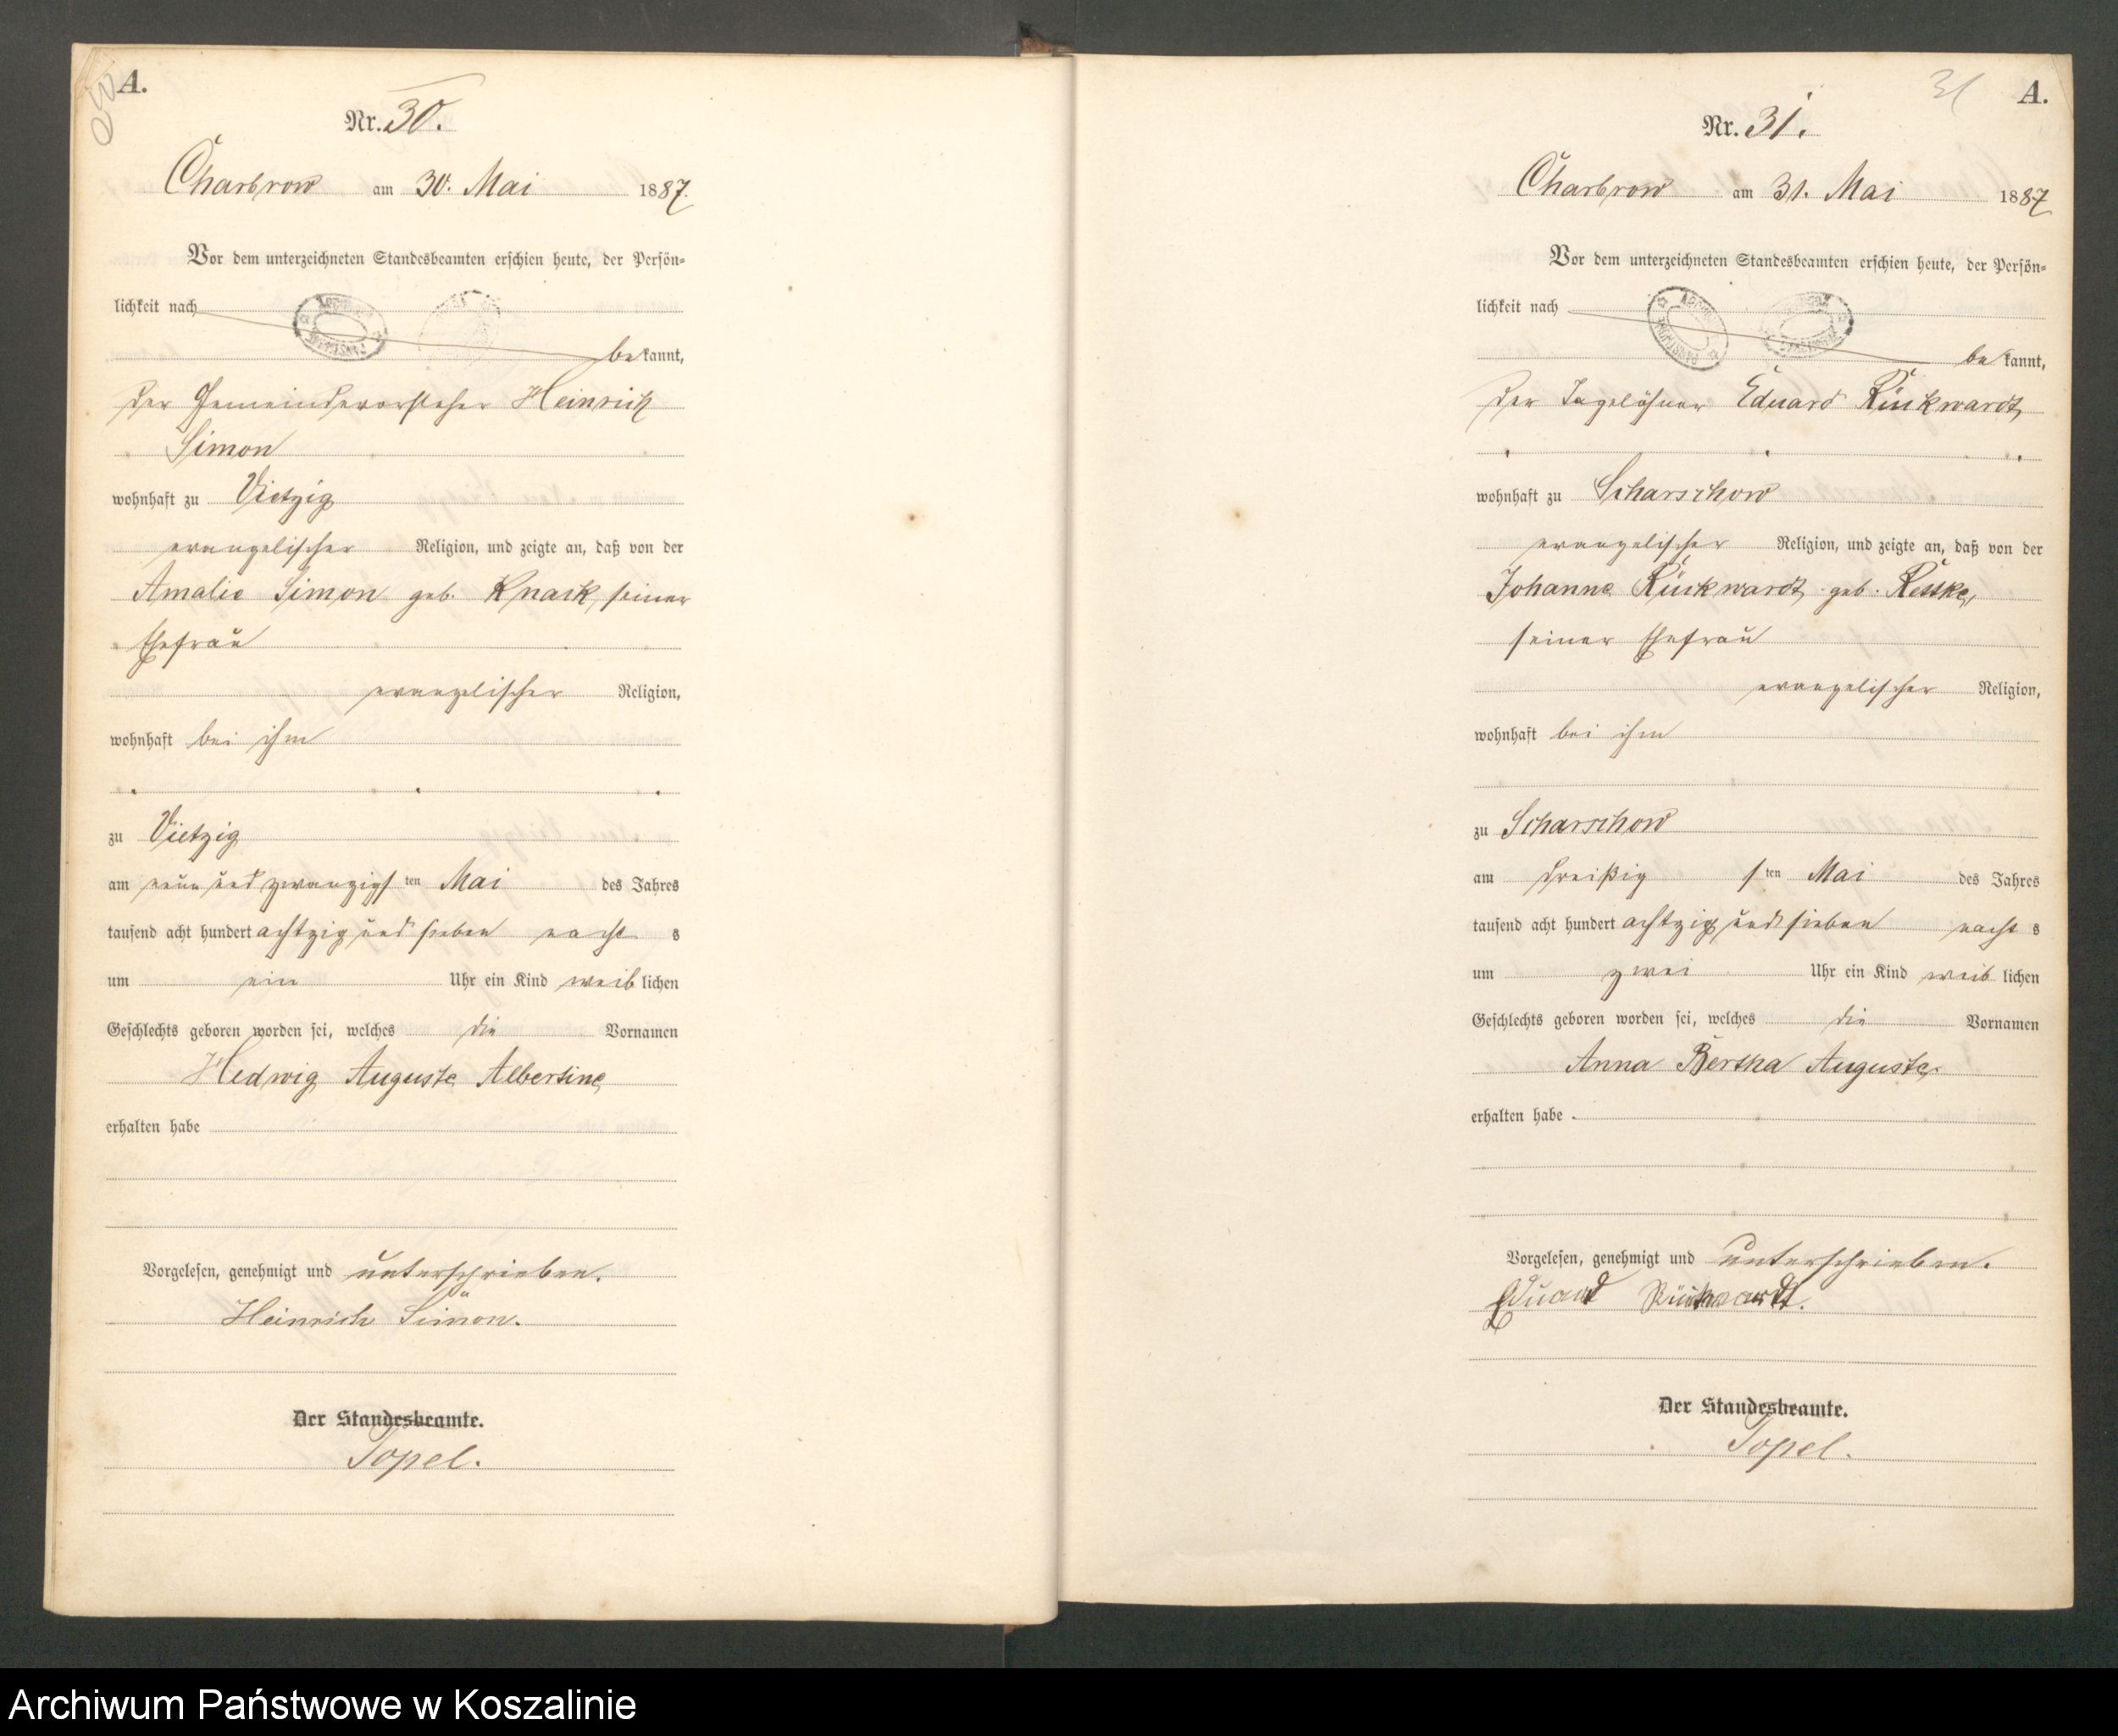 A.
Nr. 30.
Charbrow am 30. Mai 1887.
Vor dem unterzeichneten Standesbeamten erschien heute, der Persön=
lichkeit nach
bekannt,
der Gemeindevorsteher Heinrich
Simon
wohnhaft zu Vietzig
evangelischer Religion, und zeigte an, daß von der
Amalie Simon geb. Knack, seiner
Ehefrau
evangelischer Religion,
wohnhaft bei ihm
zu Vietzig
am neun und zwanzigsten Mai des Jahres
tausend acht hundert achtzig und sieben nachts
um ein Uhr ein Kind weiblichen
Geschlechts geboren worden sei, welches die Vornamen
Hedwig Auguste Albertine
erhalten habe
Vorgelesen, genehmigt und unterschrieben.
Heinrich Simon.
Der Standesbeamte.
Topel.
31
A.
Nr. 31.
Charbrow am 31. Mai 1887
Vor dem unterzeichneten Standesbeamten erschien heute, der Persön=
lichkeit nach
bekannt,
der Tagelöhner Eduard Rückwardt
wohnhaft zu Scharschow
evangelischer Religion, und zeigte an, daß von der
Johanne Rückwardt geb. Reske,
seiner Ehefrau
evangelischer Religion,
wohnhaft bei ihm
zu Scharschow
am dreißigsten Mai des Jahres
tausend acht hundert achtzig und sieben nachts
um zwei Uhr ein Kind weiblichen
Geschlechts geboren worden sei, welches die Vornamen
Anna Bertha Auguste
erhalten habe.
Vorgelesen, genehmigt und unterschrieben.
Eduard Rückwardt.
Der Standesbeamte.
Topel.
Archiwum Państwowe w Koszalinie